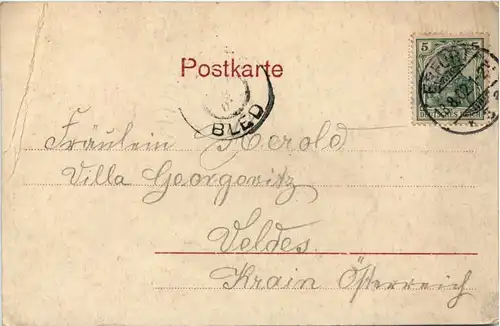 5
ERFURT
DEUTSCHES REICH
Postkarte
BLED
Fräulein Herold
Villa Georgovitz
Veldes
Krain Österreich